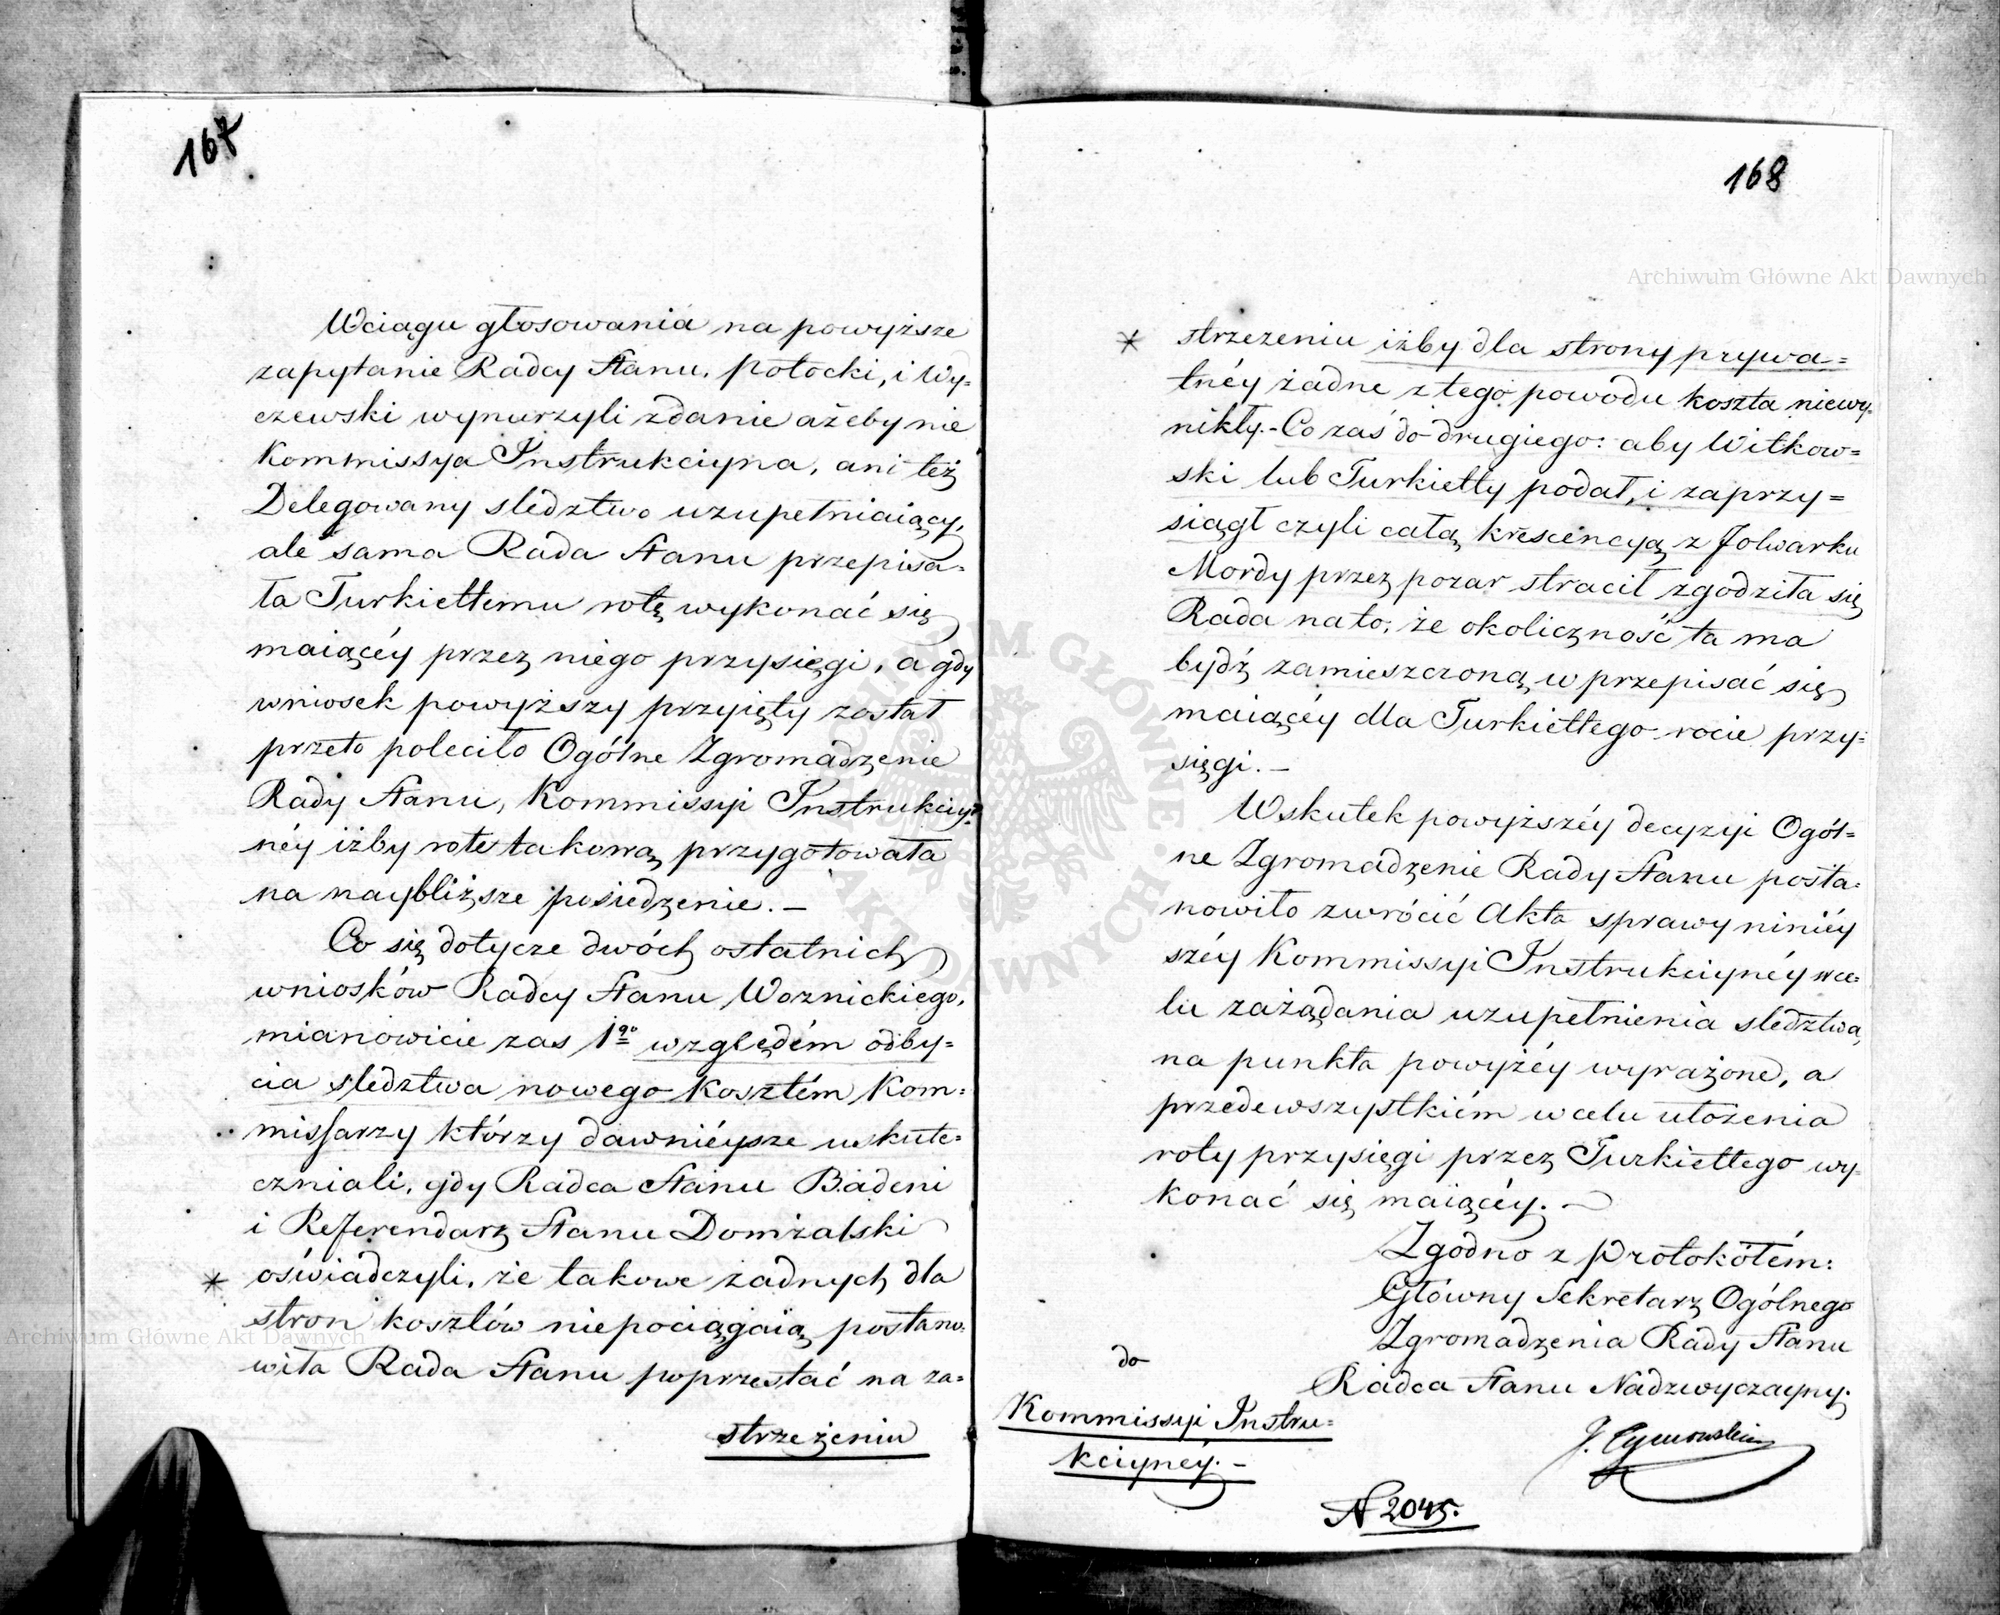 167
Wciągu głosowania na powyższe
zapytanie Radcy Stanu, Potocki, i Wy=
czewski wynurzyli zdanie ażeby nie
Kommissya Instrukcyina, ani też
Delegowany sledztwo uzupełniaiący,
ale sama Rada Stanu przepisa=
ła Turkiełłemu rotę wykonać się
maiącéy przez niego przysięgi, a gdy
wniosek powyższy przyięty został
przeto poleciło Ogólne Zgromadzenie
Rady Stanu, Kommissyi Instrukcyi=
néy iżby rotę takową przygotowała
na naybliższe posiedzenie. —
Co się dotycze dwóch ostatnich
wniosków Radcy Stanu Woznickiego,
mianowicie zas 1go względém odby=
cia sledztwa nowego kosztém Kom=
missarzy którzy dawniéysze uskute=
czniali, gdy Radca Stanu Badeni
i Referendarz Stanu Domżalski
* oświadczyli, że takowe żadnych dla
stron kosztów niepociągaią postano=
wiła Rada Stanu poprzestać na za=
strzeżeniu
168
* strzezeniu iżby dla strony prywa=
tnéy żadne z tego powodu koszta niewy=
nikły. - Co zaś do drugiego: aby Witkow=
ski lub Turkiełły podał, i zaprzy=
siągł czyli całą krescencyą z folwarku
Mordy przez pożar stracił zgodziła się
Rada nato, że okoliczność ta ma
bydź zamieszczoną w przepisać się
maiącéy dla Turkiełłego rocie przy=
sięgi. —
Wskutek powyższéy decyzyi Ogól=
ne Zgromadzenie Rady Stanu posta=
nowiło zwrócić Akta sprawy niniéy
széy Kommissyi Instrukcyinéy wce=
lu zażądania uzupełnienia sledztwa,
na punkta powyżéy wyrażone, a
przedewszystkiém w celu ułożenia
roty przysięgi przez Turkiełłego wy=
konać się maiącéy. —
Zgodno z Protokółém:
Główny Sekretarz Ogólnego
Zgromadzenia Rady Stanu
Radca Stanu Nadzwyczayny.
do
Kommissyi Instru=
kcyinéy. —
J. Tymowski
N 2045.
Archiwum Główne Akt Dawnych
Archiwum Główne Akt Dawnych
ARCHIWUM GŁÓWNE AKT DAWNYCH